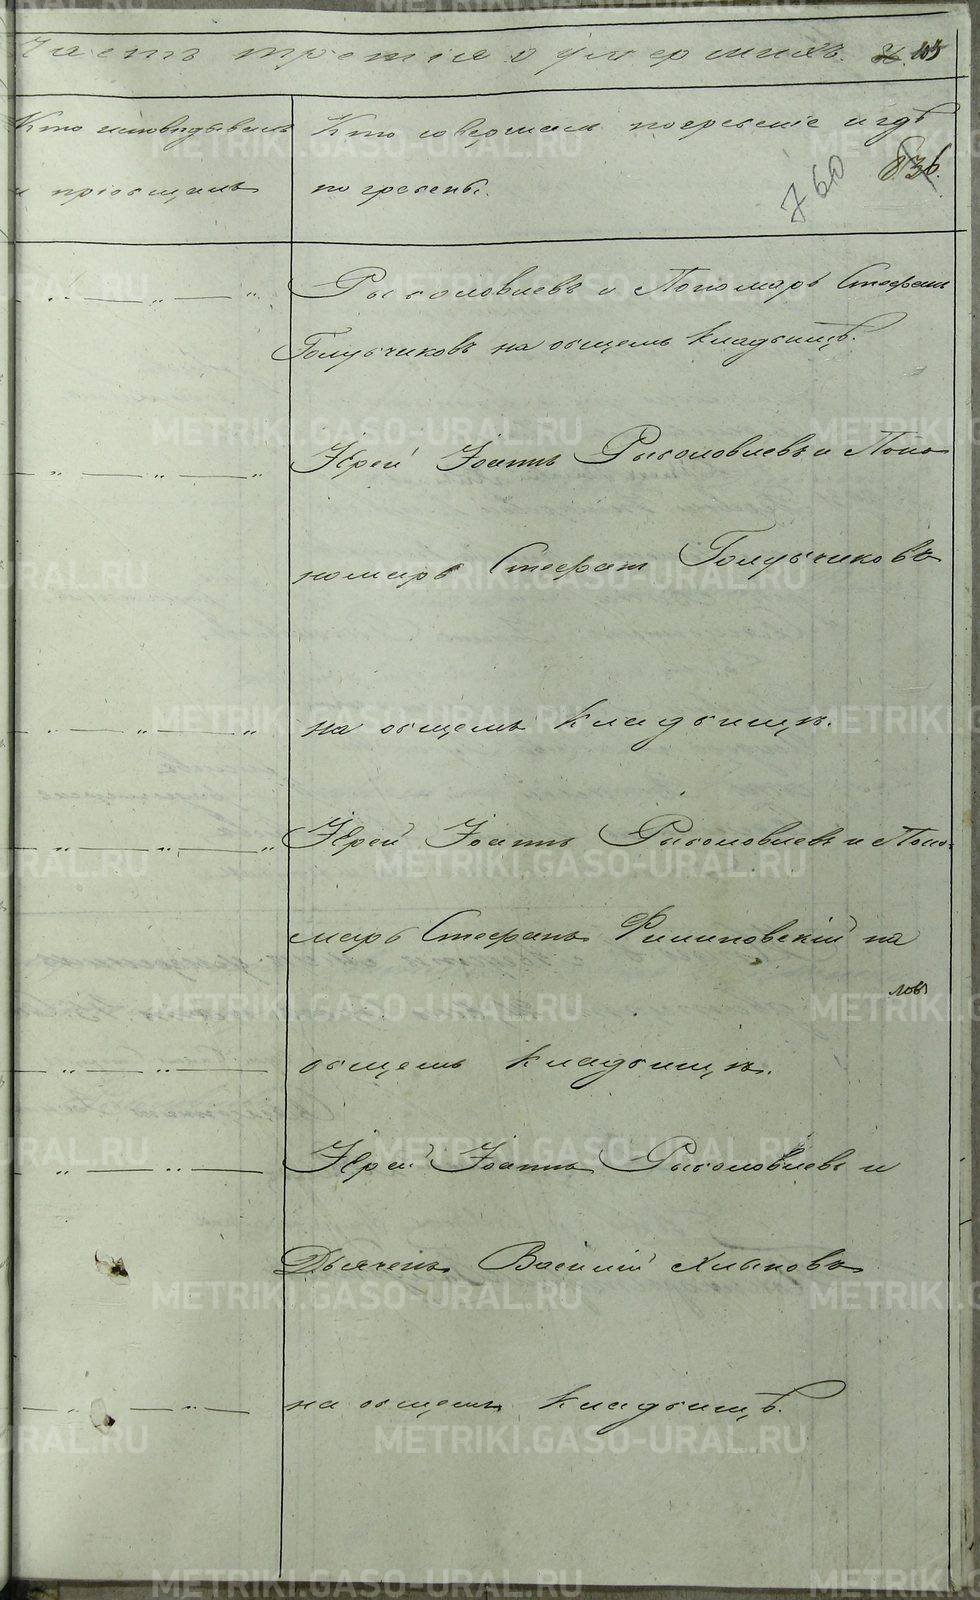 Часть третія о умермихъ. 103
Кто исповѣдывалъ Кто совершалъ погребеніе и гдѣ
836.
и пріобщалъ погребены.
760
" — " — " Рыболовлевъ и Пономарь Стефанъ
Голубчиковъ на общемъ кладбищѣ.
" — " — " Іерей Іоаннъ Рыболовлевъ и Поно
номарь Стефанъ Голубчиковъ
" — " — " на общемъ кладбищѣ.
" — " — " Іерей Іоаннъ Рыболовлевъ и Поно-
марь Стефанъ Филиповскій на
ловъ
" — " — общемъ кладбищѣ.
" — " — Іерей Іоаннъ Рыболовлевъ и
Дьячекъ Василій Хлыновъ
— " — на общемъ кладбищѣ.
METRIKI.GASO-URAL.RU